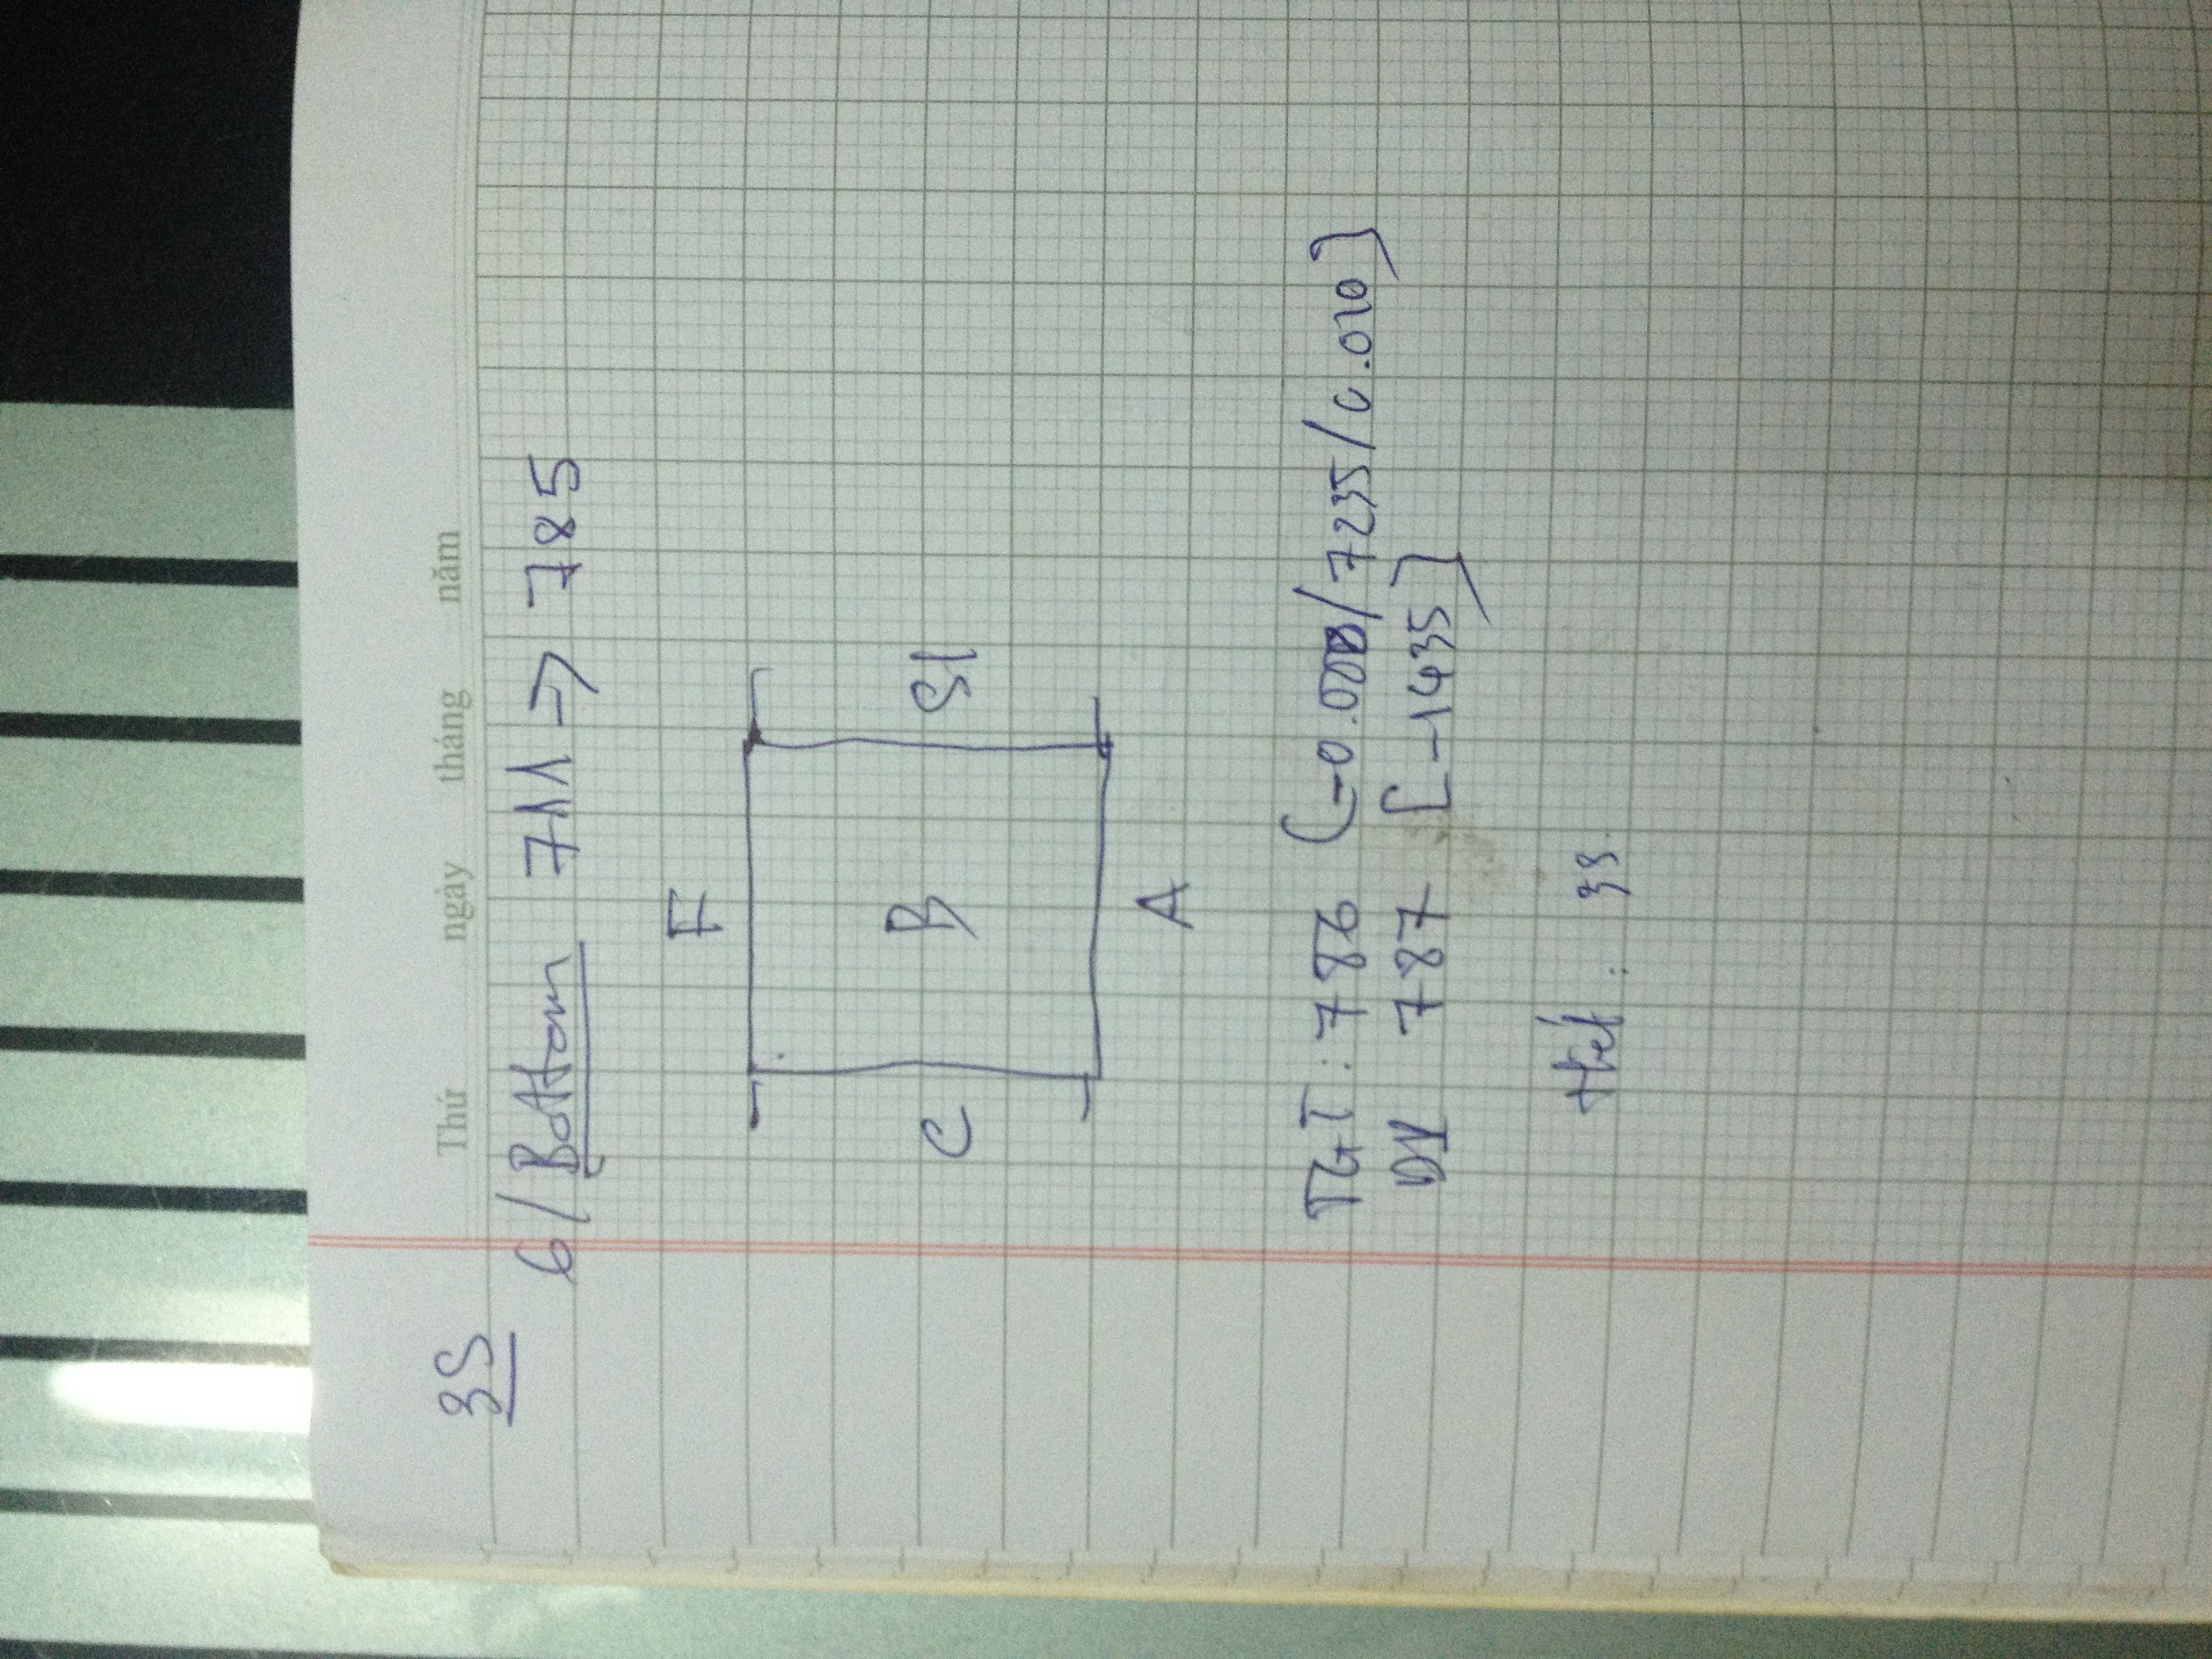 3S
Thứ ngày tháng năm
6/ Bottom 711 -> 785
F
C B S1
A
TGT: 786 (-0.000/7235/0.010]
787 [-1435]
Hết: 3S.